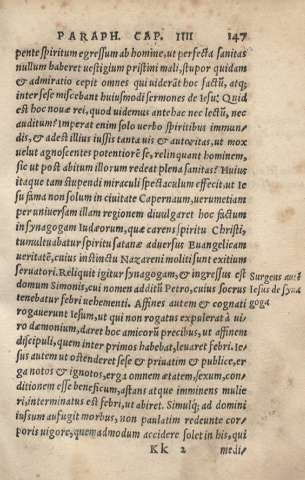 PARAPH. CAP. IIII 147
pente spiritum egressum ab homine, ut perfecta sanitas
nullum haberet uestigium pristini mali, stupor quidam
& admiratio cepit omnes qui uiderāt hoc factū, atq;
inter sese miscebant huiusmodi sermones de Iesu: Quid
est hoc nouæ rei, quod uidemus antehac nec lectū, nec
auditum? Imperat enim solo uerbo spiritibus immun-
dis, & adest illius iussis tanta uis & autoritas, ut mox
uelut agnoscentes potentiorē se, relinquant hominem,
sic ut post abitum illorum redeat plena sanitas? Huius
itaque tam stupendi miraculi spectaculum effecit, ut Ie
su fama non solum in ciuitate Capernaum, uerumetiam
per uniuersam illam regionem diuulgaret hoc factum
in synagogam Iudæorum, quæ carens spiritu Christi,
tumultuabatur spiritu satanæ aduersus Euangelicam
ueritatē, cuius instinctu Nazareni moliti sunt exitium
seruatori. Reliquit igitur synagogam, & ingressus est
domum Simonis, cui nomen additū Petro, cuius socrus
tenebatur febri uehementi. Affines autem & cognati
rogauerunt Iesum, ut qui non rogatus expulerat à ui-
ro dæmonium, daret hoc amicorū precibus, ut affinem
discipuli, quem inter primos habebat, leuaret febri. Ie-
sus autem ut ostenderet sese & priuatim & publice, er
ga notos & ignotos, erga omnem ætatem, sexum, con-
ditionem esse beneficum, astans atque imminens mulie
ri, interminatus est febri, ut abiret. Simulq; ad domini
iussum aufugit morbus, non paulatim redeunte cor-
poris uigore, quemadmodum accidere solet in his, qui
Surgens autē
Iesus de syna
goga
Kk 2 medi-